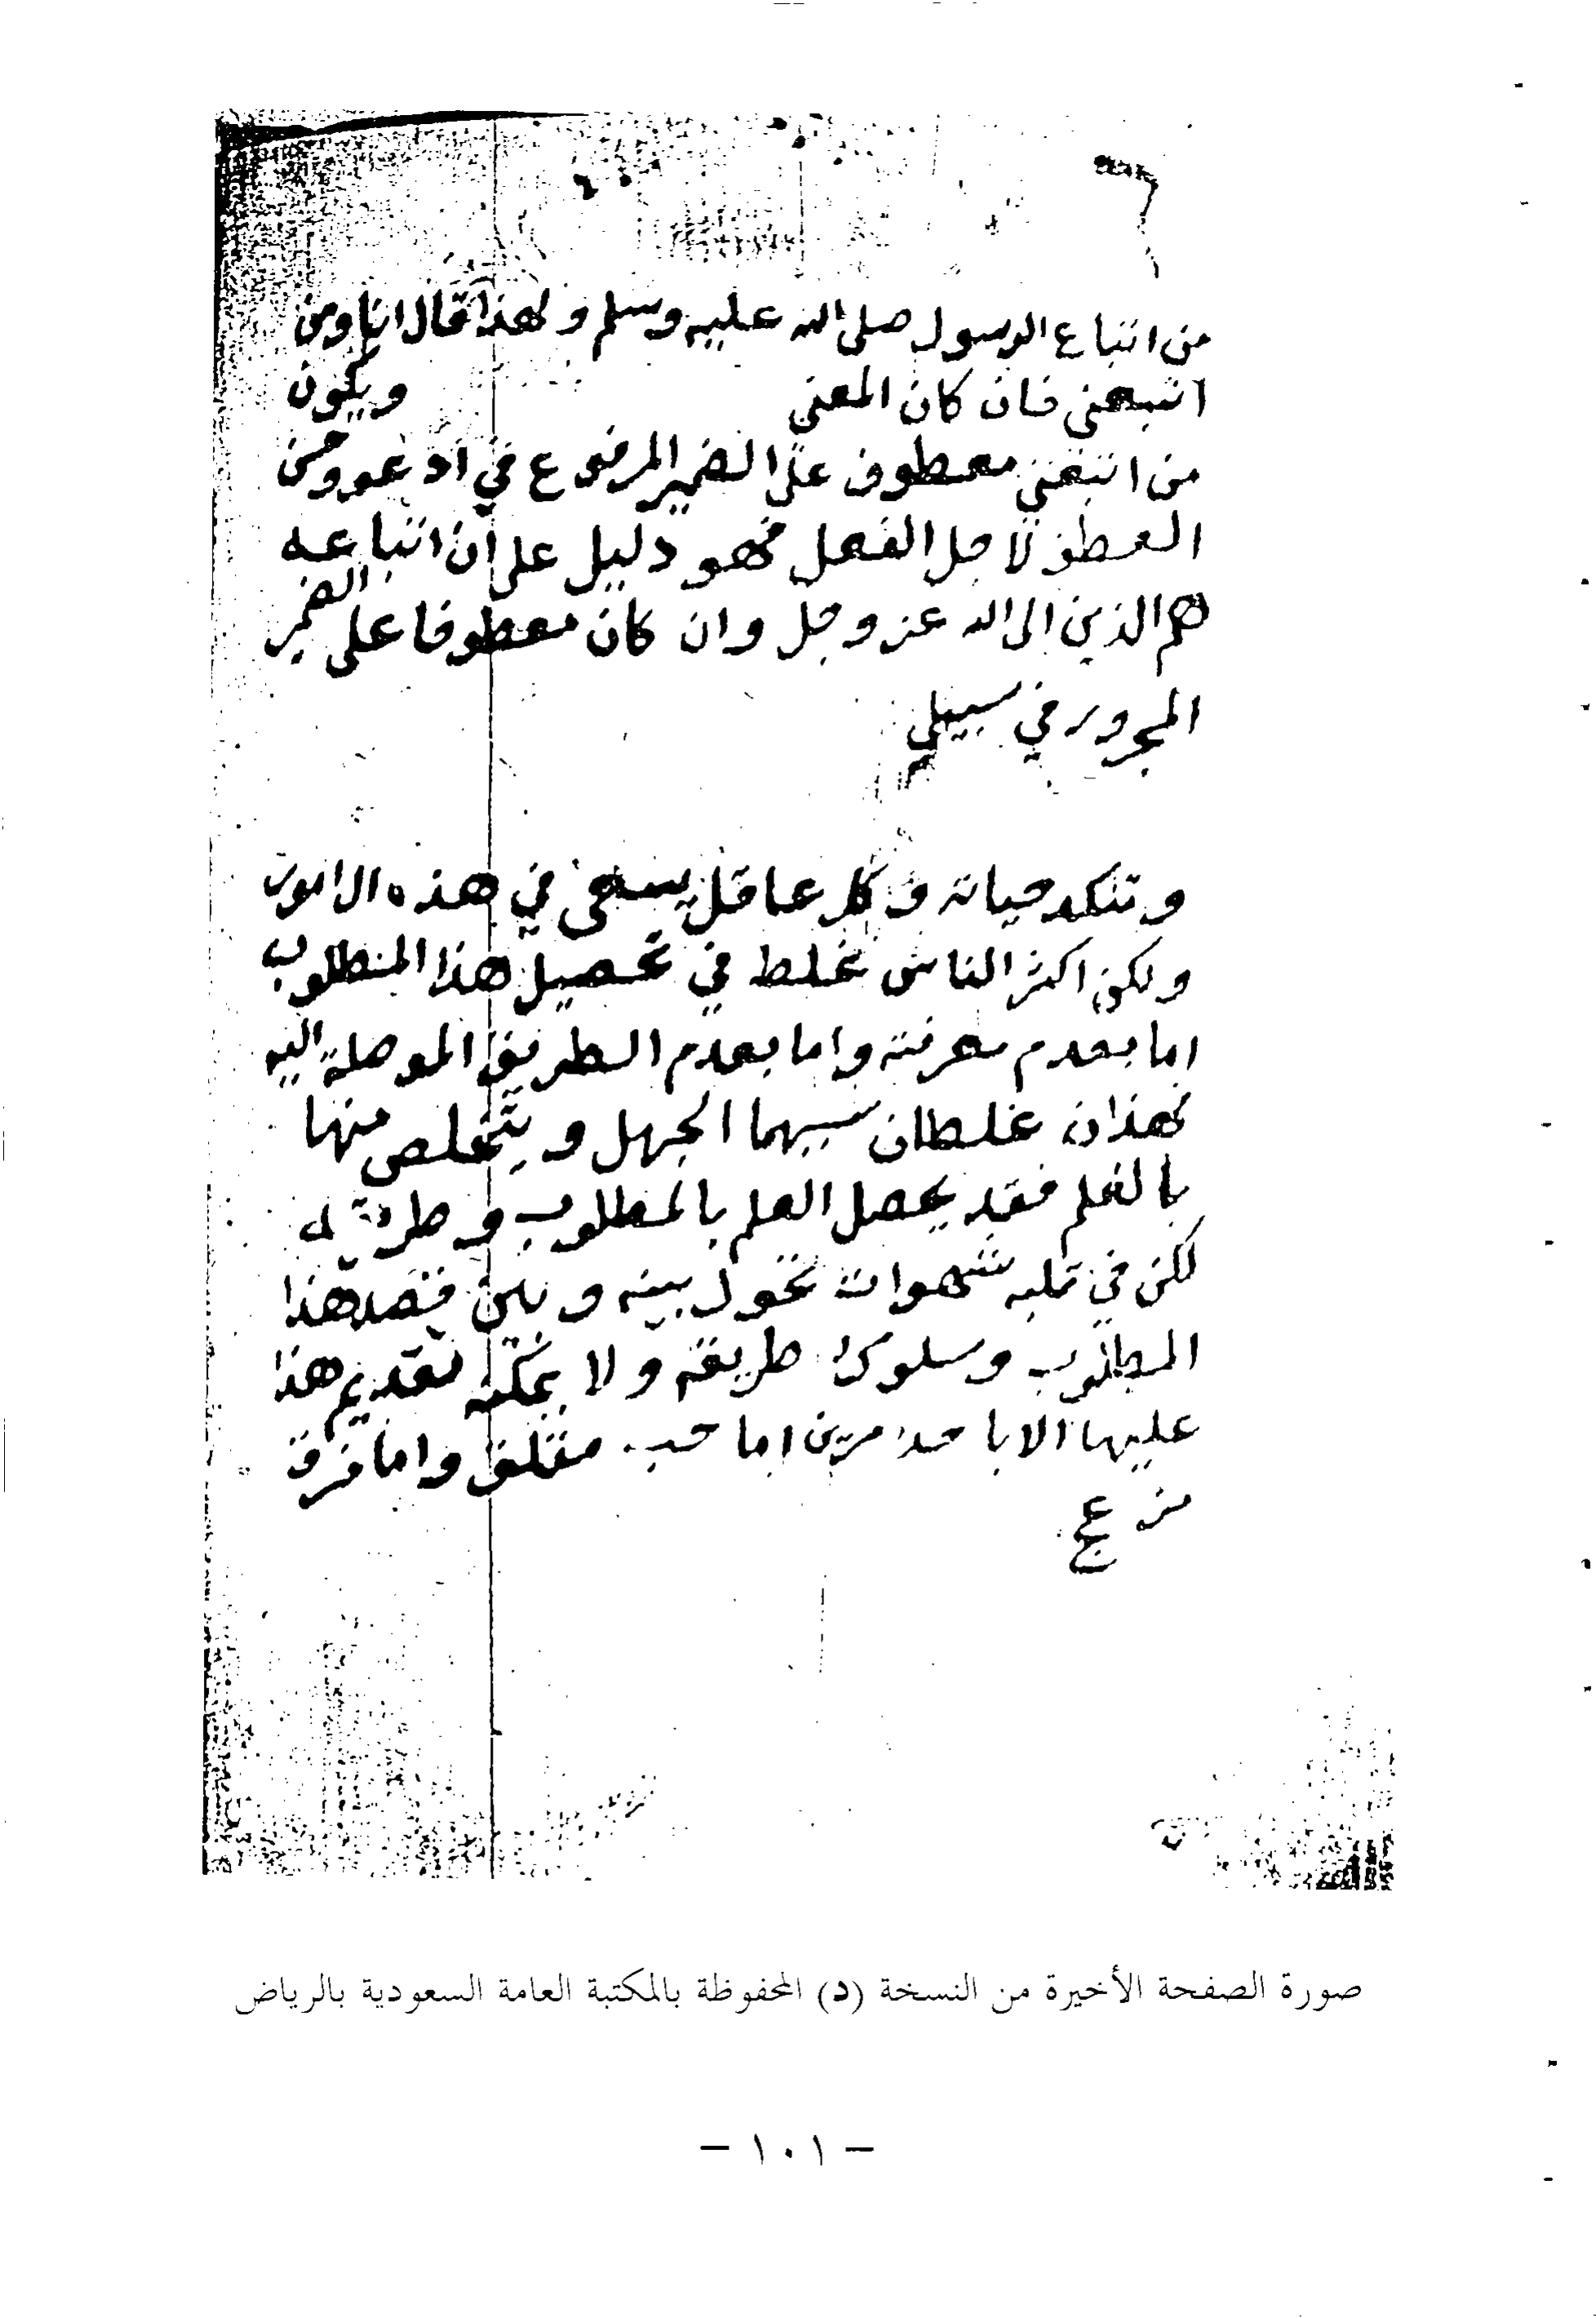 من اتباع الرسول صلى الله عليه وسلم ولهذا قال انا ومن
اتبعني فان كان المعنى ويكون
من اتبعني معطوف على الضمير المرفوع في ادعو وحسن
العطف لاجل الفصل فهو دليل على ان اتباعه
هم الذين الى الله عز وجل وان كان معطوفا على الضمير
المجرور في سبيلي
وتنكد حياته وكل عاقل يسعى في هذه الامور
ولكن اكثر الناس غلط في تحصيل هذا المطلوب
اما بعدم معرفته واما بعدم الطريق الموصلة اليه
فهذان غلطان سببهما الجهل ويتخلص منها
بالعلم فقد يحصل العلم بالمطلوب وطريقه
لكن في قلبه شهوات تحول بينه وبين قصد هذا
المطلوب وسلوك طريقه ولا يمكنه تقديم هذا
عليها الا باحد مرين اما حب مقلق واما فرق
صورة الصفحة الأخيرة من النسخة (د) المحفوظة بالمكتبة العامة السعودية بالرياض
- ١٠١ -